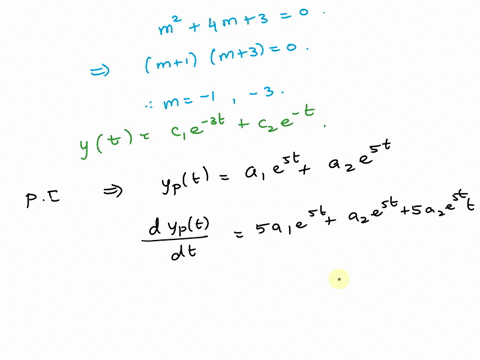 m² + 4m + 3 = 0.
⇒ (m+1) (m+3) = 0.
∴ m = -1, -3.
y(t) = c₁e^{-3t} + c₂e^{-t}.
P.I ⇒ yₚ(t) = a₁e^{5t} + a₂e^{5t}
d yₚ(t)/dt = 5a₁e^{5t} + a₂e^{5t} + 5a₂e^{5t}t